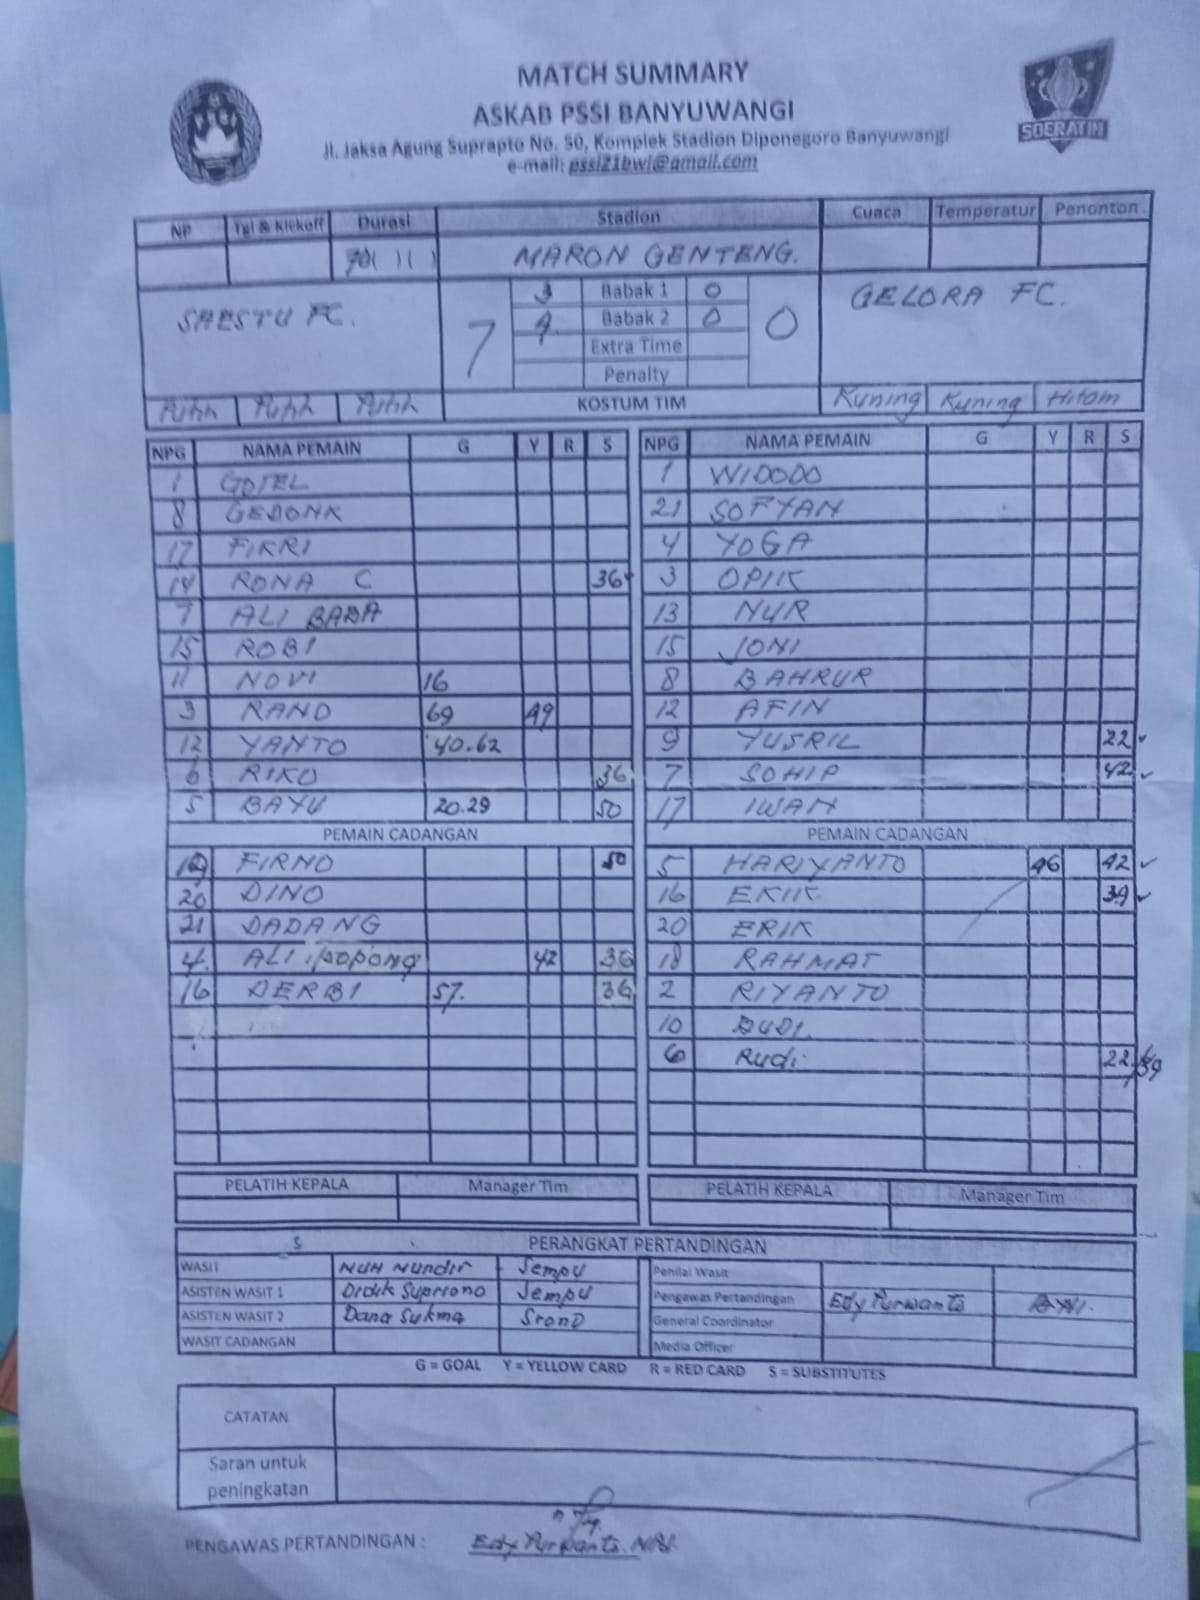 MATCH SUMMARY
ASKAB PSSI BANYUWANGI
Jl. Jaksa Agung Suprapto No. 50, Komplek Stadion Diponegoro Banyuwangi
e-mail: pssi21bwi@gmail.com
SOERATIN
NP Tgl & Kickoff Durasi Stadion Cuaca Temperatur Penonton
70( )( ) MARON GENTENG.
SAESTU FC. 7 3 Babak 1 0 0 GELORA FC.
4 Babak 2 0
Extra Time
Penalty
Putih Putih Putih KOSTUM TIM Kuning Kuning Hitam
NPG NAMA PEMAIN G Y R S NPG NAMA PEMAIN G Y R S
1 1 WIDODO
8 GEDONK 21 SOFYAN
17 FIKRI 4 YOGA
14 RONA C 36 3 OPIIK
7 ALI BABA 13 NUR
15 ROBI 15 JONI
11 NOVI 16 8 BAHRUR
3 RANO 69 49 12 AFIN
12 YANTO 40.62 9 YUSRIL 22
6 RIKO 36 7 SOHIP 42
5 BAYU 20.29 50 17 IWAN
PEMAIN CADANGAN PEMAIN CADANGAN
FIRNO 50 5 HARIYANTO 46 42
20 DINO 16 EKIIK 39
21 DADANG 20 ERIK
4. ALI 42 36 18 RAHMAT
16 DERBI 57. 36 2 RIYANTO
10 BUDI.
6 Rudi 22/39
PELATIH KEPALA Manager Tim PELATIH KEPALA Manager Tim
PERANGKAT PERTANDINGAN
WASIT NUH Nundir Sempu Penilai Wasit
ASISTEN WASIT 1 Didik Supriono Sempu Pengawas Pertandingan Edy Purwanto
ASISTEN WASIT 2 Dana Sukma SronD General Coordinator
WASIT CADANGAN Media Officer
G = GOAL Y = YELLOW CARD R = RED CARD S = SUBSTITUTES
CATATAN
Saran untuk
peningkatan
PENGAWAS PERTANDINGAN : Edy Purwanto